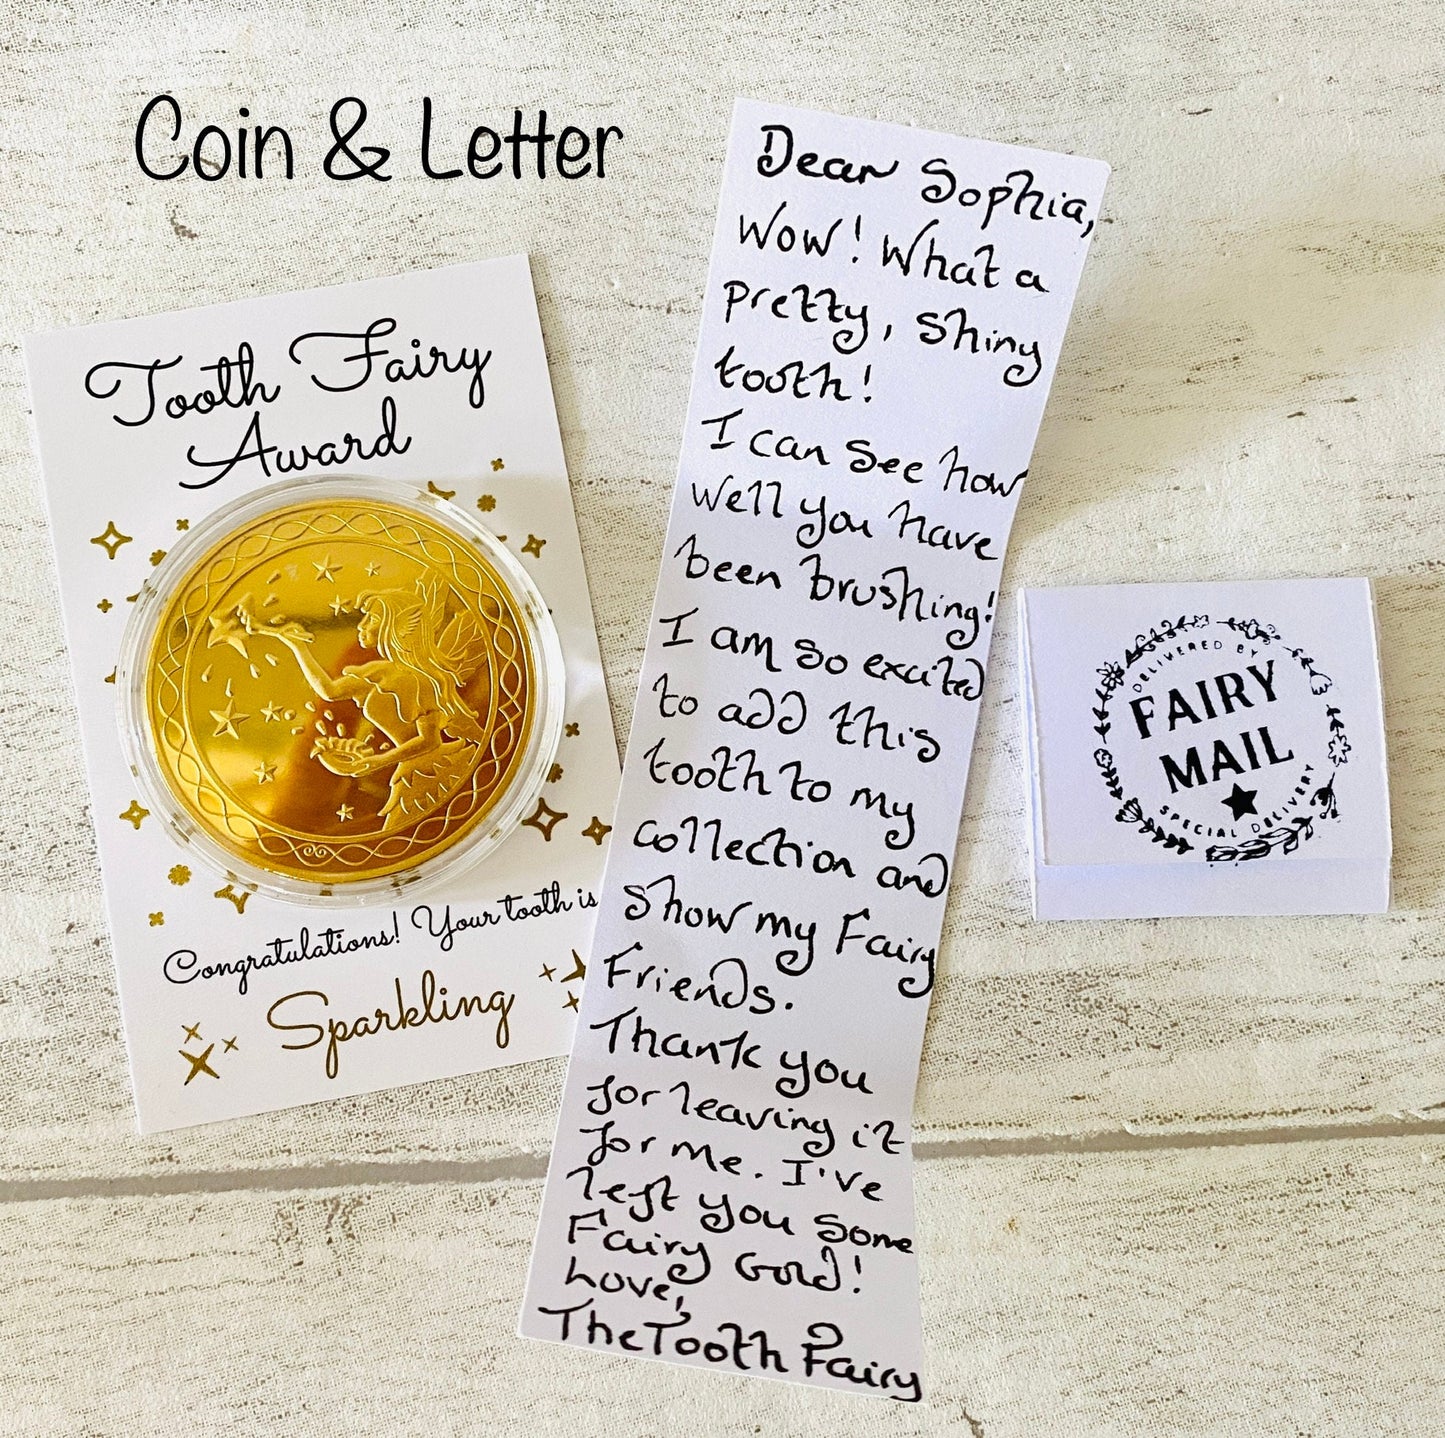 Coin & Letter
Tooth Fairy
Award
Congratulations! Your tooth is
Sparkling
Dear Sophia,
Wow! What a
pretty, shiny
tooth!
I can see how
well you have
been brushing!
I am so excited
to add this
tooth to my
collection and
show my Fairy
Friends.
Thank you
for leaving it
for me. I've
left you some
Fairy Gold!
Love,
The Tooth Fairy
DELIVERED BY
FAIRY
MAIL
SPECIAL DELIVERY